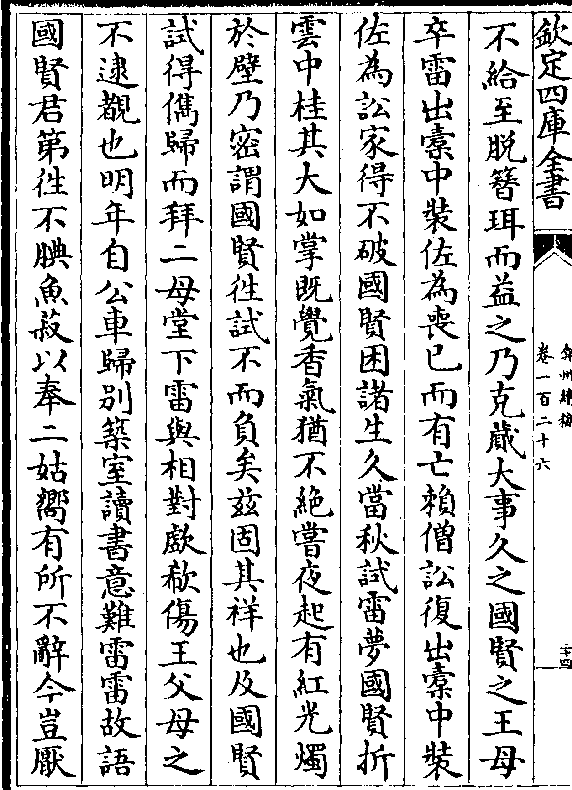 欽定四庫全書
弇州續稿
卷一百二十六
二十四
不給至脱簪珥而益之乃克蕆大事久之國賢之王母
卒雷出橐中裝佐為喪已而有亡賴僧訟復出橐中裝
佐為訟家得不破國賢困諸生久當秋試雷夢國賢折
雲中桂其大如掌既覺香氣猶不絶嘗夜起有紅光燭
於壁乃密謂國賢徃試不而負矣兹固其祥也及國賢
試得儁歸而拜二母堂下雷與相對歔欷傷王父母之
不逮覩也明年自公車歸别築室讀書意難雷雷故語
國賢君第徃不腆魚菽以奉二姑嚮有所不辭今豈厭